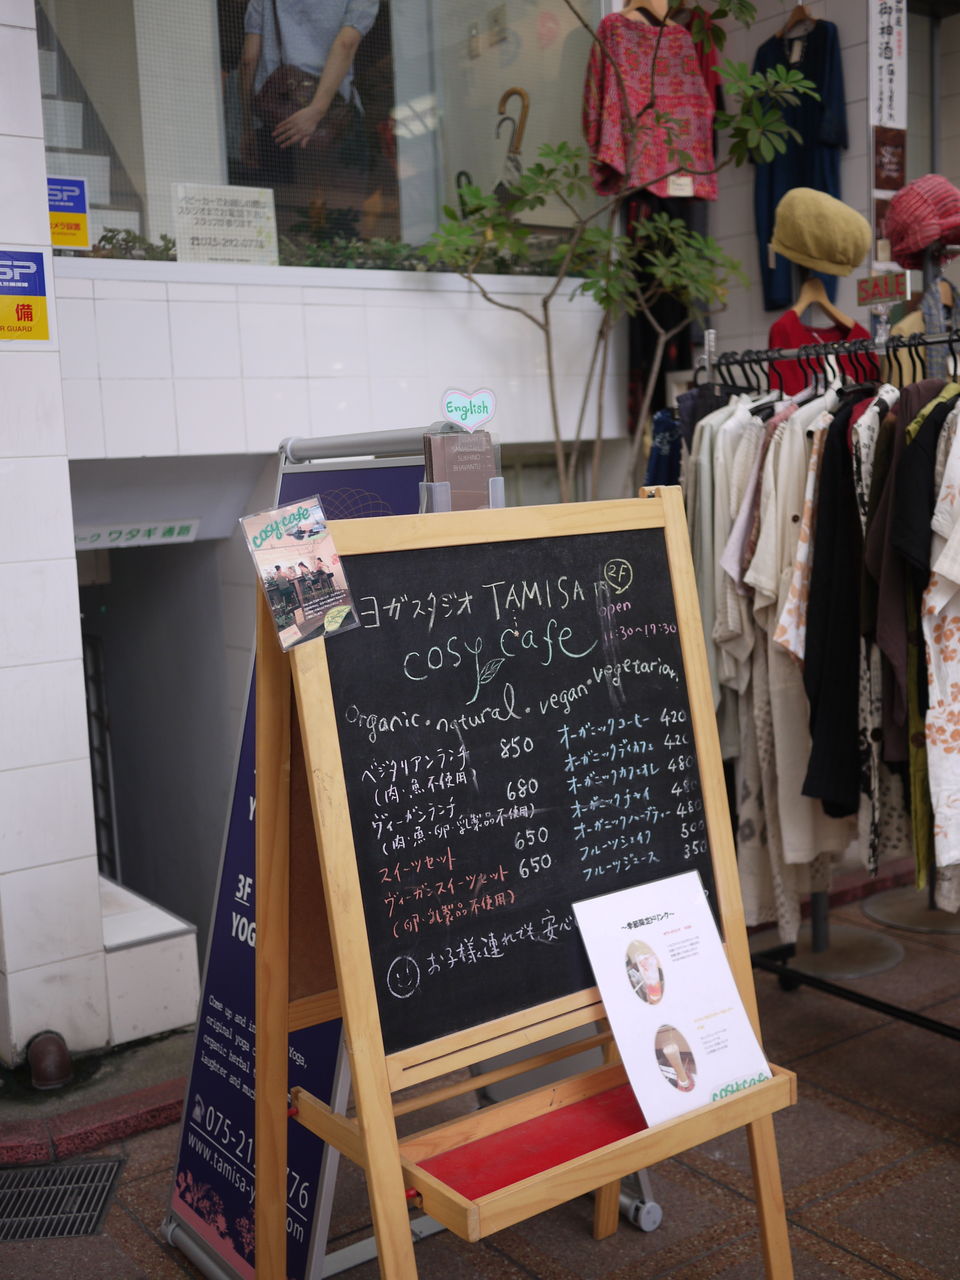 御神酒
SP
カメラ設置
ベビーカーでお越しの際は
スタジオまでお電話下さい。
スタッフが参ります
☎075-212-0776
SP
備
R GUARD
SALE
English
SUKHINO
BHAVANTU
ワタギ通路
cosy cafe
ヨガスタジオ TAMISA
2F
cosy cafe
open
11:30~17:30
organic・natural・vegan・vegetarian
ベジタリアンランチ 850
(肉・魚不使用)
ヴィーガンランチ 680
(肉・魚・卵・乳製品不使用)
スイーツセット 650
ヴィーガンスイーツセット 650
(卵・乳製品不使用)
オーガニックコーヒー 420
オーガニックデイカフェ 420
オーガニックカフェオレ 480
オーガニックチャイ 480
オーガニックハーブティー 480
フルーツシェイク 500
フルーツジュース 350
お子様連れでも安心
~季節限定ドリンク~
cosy cafe
3F
YOG
Come up and
original yoga
organic herbal
laughter and
Yoga,
075-21 776
www.tamisa-y om